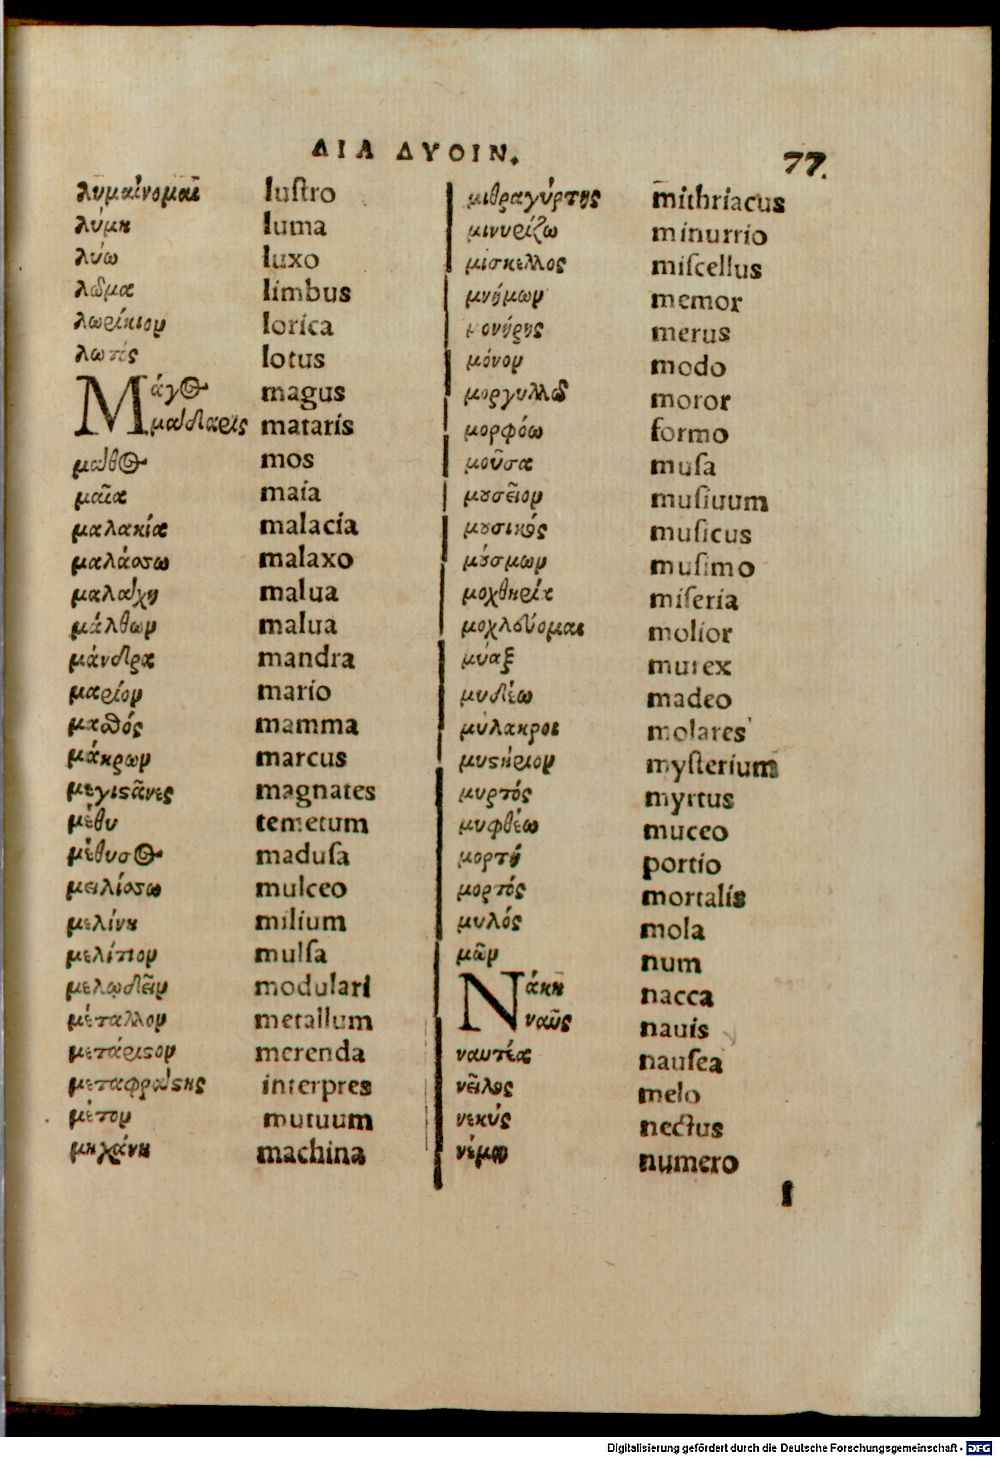 ΔΙΑ ΔΥΟΙΝ.
77.
λυμαίνομαι lustro
λύμη luma
λύω luxo
λῶμα limbus
λωρίκιον lorica
λωτός lotus
Μάγος magus
μαδαρις mataris
μάθος mos
μαῖα maia
μαλακία malacía
μαλάσσω malaxo
μαλάχη malua
μάλθων malua
μάνδρα mandra
μαρίον mario
μασθός mamma
μάκρων marcus
μεγιστᾶνες magnates
μέθυ temetum
μέθυσος madusa
μειλίσσω mulceo
μελίνη milium
μελίτιον mulsa
μελῳδεῖν modulari
μέταλλον metallum
μετάριστον merenda
μεταφράστης interpres
μέτον mutuum
μηχάνη machina
μιθραγύρτης mithriacus
μινυρίζω minurrio
μίσκελλος miscellus
μνήμων memor
μονήρης merus
μόνον modo
μοργυλλῶ moror
μορφόω formo
μοῦσα musa
μουσεῖον musiuum
μουσικός musicus
μούσμων musimo
μοχθηρία miseria
μοχλεύομαι molior
μύαξ murex
μυδέω madeo
μύλακροι molares
μυστήριον mysterium
μυρτός myrtus
μυφθέω muceo
μορτή portio
μορτός mortalis
μυλός mola
μῶν num
Νάκη nacca
ναῦς nauis
ναυτία nausea
νεῖλος melo
νεκύς nectus
νέμω numero
f
Digitalisierung gefördert durch die Deutsche Forschungsgemeinschaft - DFG